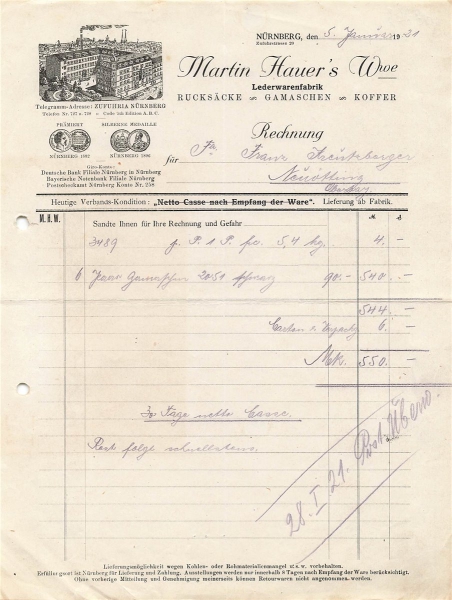 NÜRNBERG, den 5. Januar 1921
Martin Hauer's Wwe
Lederwarenfabrik
RUCKSÄCKE GAMASCHEN KOFFER
Telegramm-Adresse: ZUFUHRIA NÜRNBERG
PRÄMIIERT SILBERNE MEDAILLE
NÜRNBERG 1882 NÜRNBERG 1896
Giro-Konto:
Deutsche Bank Filiale Nürnberg in Nürnberg
Bayerische Notenbank Filiale Nürnberg
Postscheckamt Nürnberg Konto Nr. 258
Rechnung
für Fa Franz
Neuötting
Heutige Verbands-Kondition: „Netto Casse nach Empfang der Ware". Lieferung ab Fabrik.
M.H.W.
Sandte Ihnen für Ihre Rechnung und Gefahr
3489 p. P. 1 P. fco. 5,4 kg 4.-
6 Paar Gamaschen 2051 90.- 540.-
544.-
Carton 6.-
Mk. 550.-
30 Tage netto Casse.
Rest folgt schnellstens.
28. I. 21.
Lieferungsmöglichkeit wegen Kohlen- oder Rohmaterialienmangel u.s.w. vorbehalten.
Erfüllungsort ist Nürnberg für Lieferung und Zahlung. Ausstellungen werden nur innerhalb 8 Tagen nach Empfang der Ware berücksichtigt.
Ohne vorherige Mitteilung und Genehmigung meinerseits können Retourwaren nicht angenommen werden.